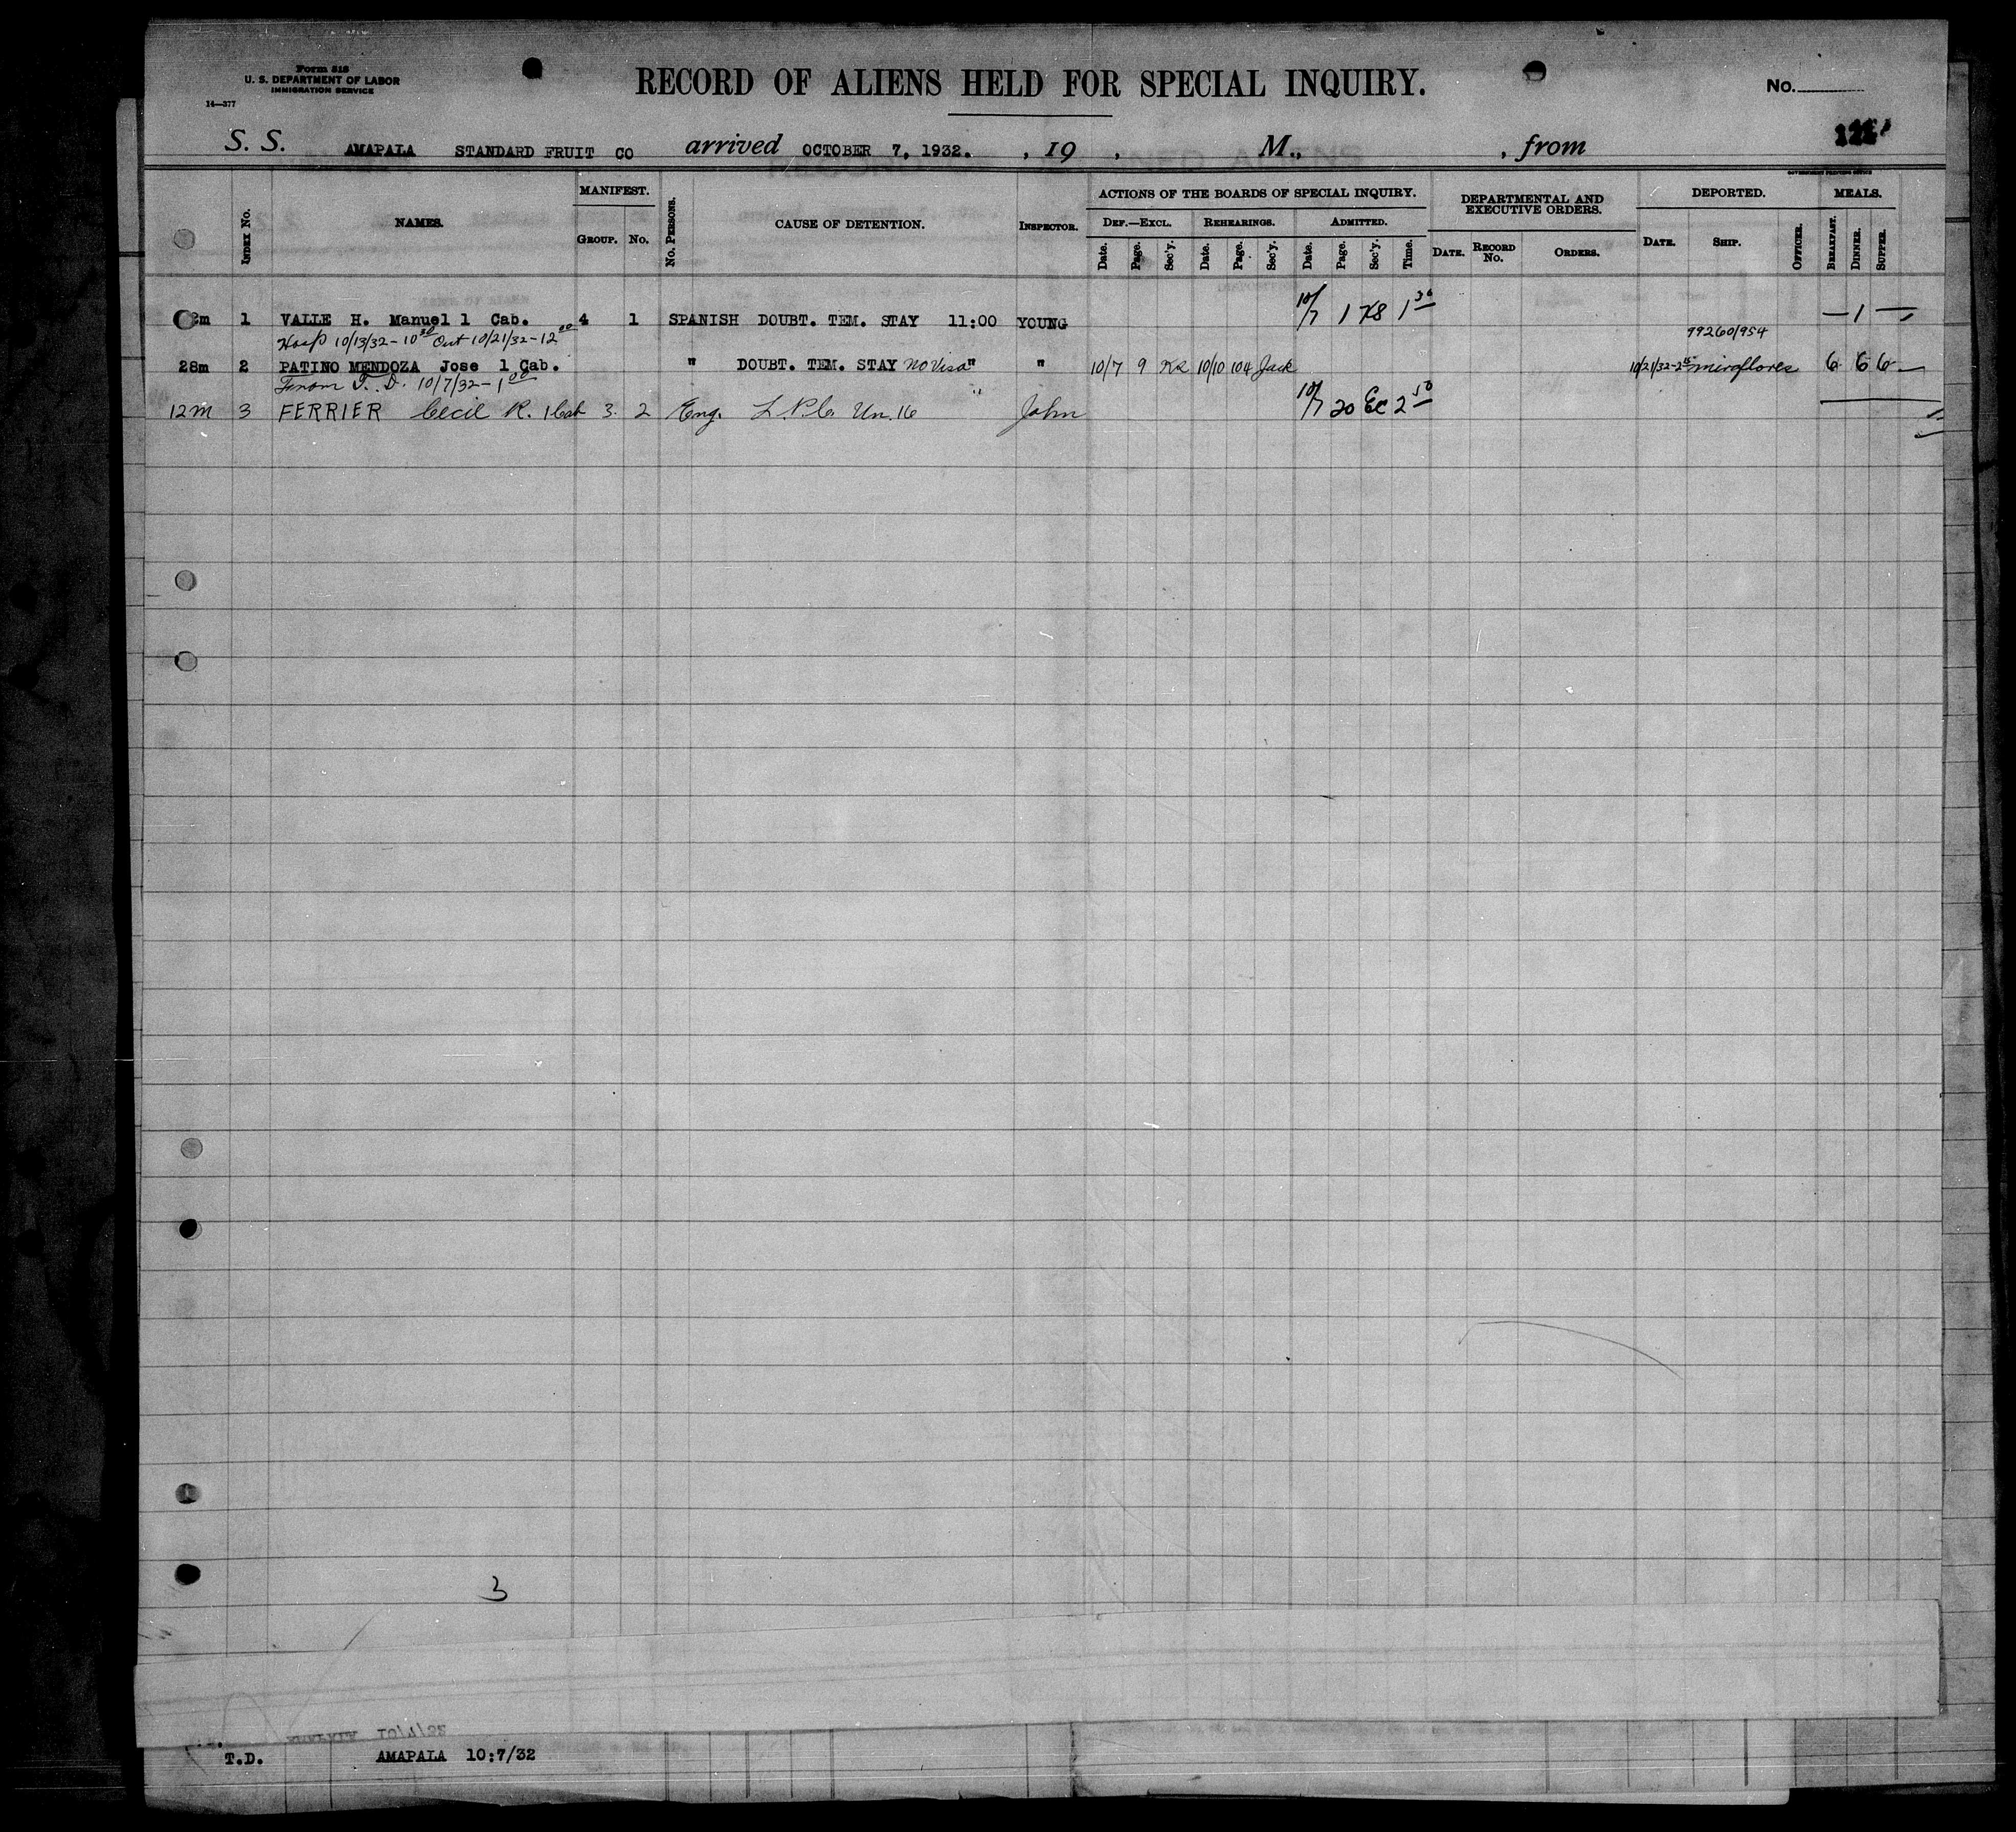 Form 518
U. S. DEPARTMENT OF LABOR
IMMIGRATION SERVICE
14—377
RECORD OF ALIENS HELD FOR SPECIAL INQUIRY.
No.
S. S. AMAPALA STANDARD FRUIT CO arrived OCTOBER 7, 1932. , 19 , M., , from
GOVERNMENT PRINTING OFFICE
INDEX No. NAMES. MANIFEST. GROUP. No. No. PERSONS. CAUSE OF DETENTION. INSPECTOR. ACTIONS OF THE BOARDS OF SPECIAL INQUIRY. DEPARTMENTAL AND EXECUTIVE ORDERS. DEPORTED. MEALS.
DEF.—EXCL. REHEARINGS. ADMITTED.
Date. Page. Sec'y. Date. Page. Sec'y. Date. Page. Sec'y. Time. DATE. RECORD No. ORDERS. DATE. SHIP. OFFICER. BREAKFAST. DINNER. SUPPER.
1 VALLE H. Manuel 1 Cab. 4 1 SPANISH DOUBT. TEM. STAY 11:00 YOUNG 10/7 1 1 30 — 1 —
Hosp 10/13/32 - 10 30 Out 10/21/32 - 12 00
99260/954
28m 2 PATINO MENDOZA Jose 1 Cab. " DOUBT. TEM. STAY no visa " " 10/7 9 10/10 104 Jack 10/21/32 - miraflores 6 6 6
From T. D. 10/7/32 - 1 00
12m 3 FERRIER Cecil R. 1 Cab 3 2 Eng. L.P.C. Un. 16 " John 10/7 20 EC 2 50
3
T.D. AMAPALA 10:7/32